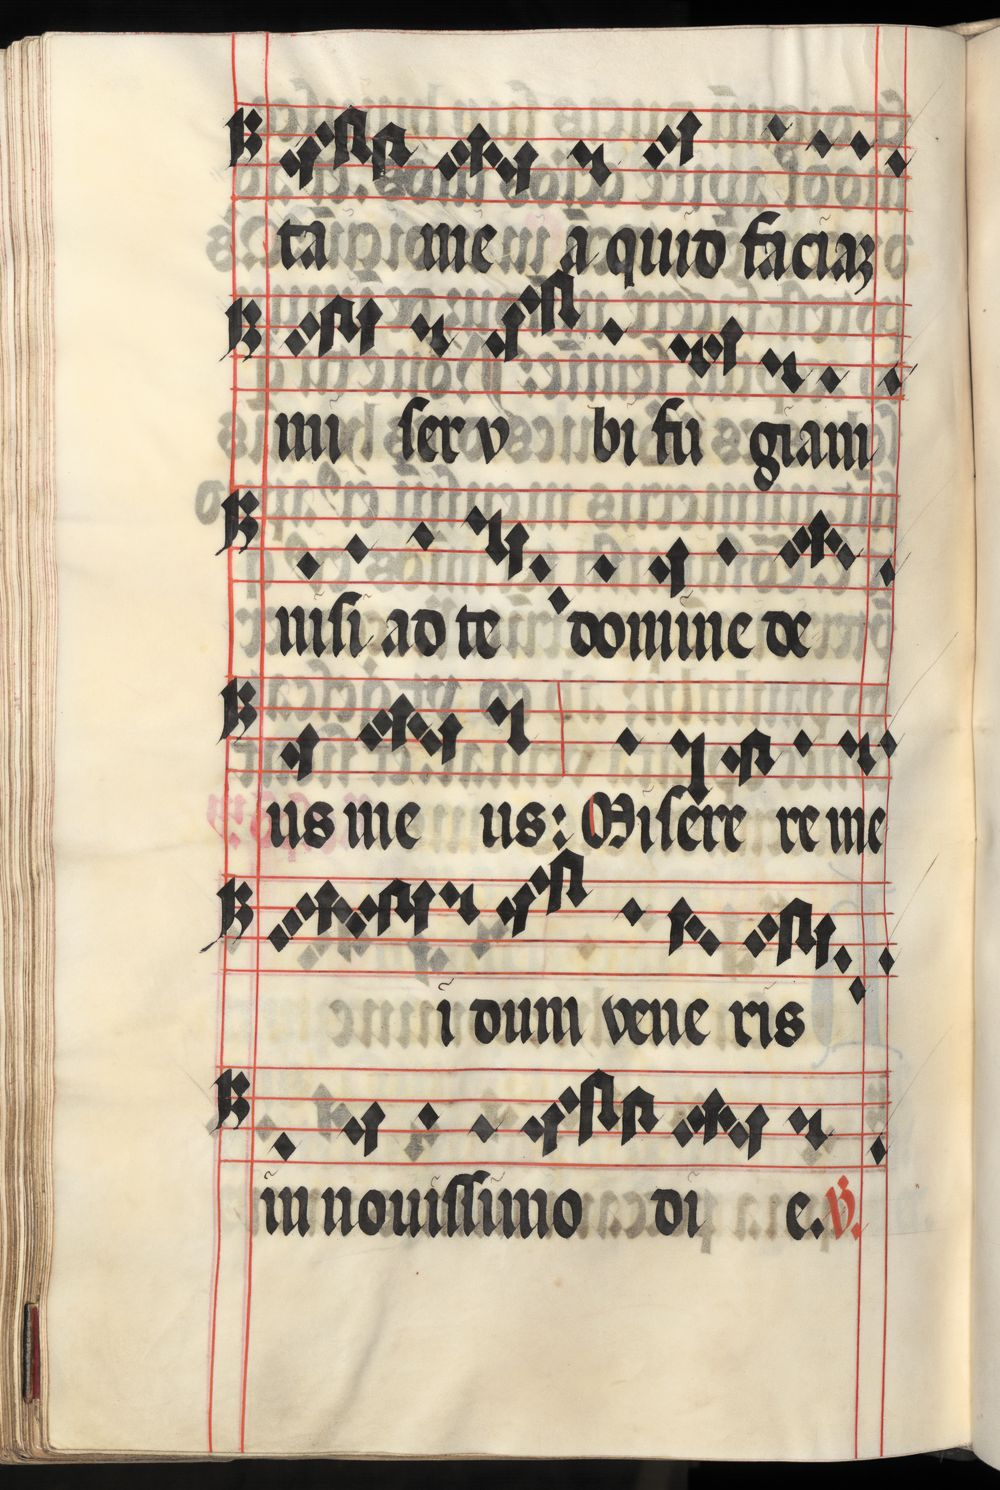 ta me a quid faciaʒ
mi ser v bi fu giam
nisi ad te domine de
us me us: Misere re me
i dum vene ris
in nouissimo di e. V̇.